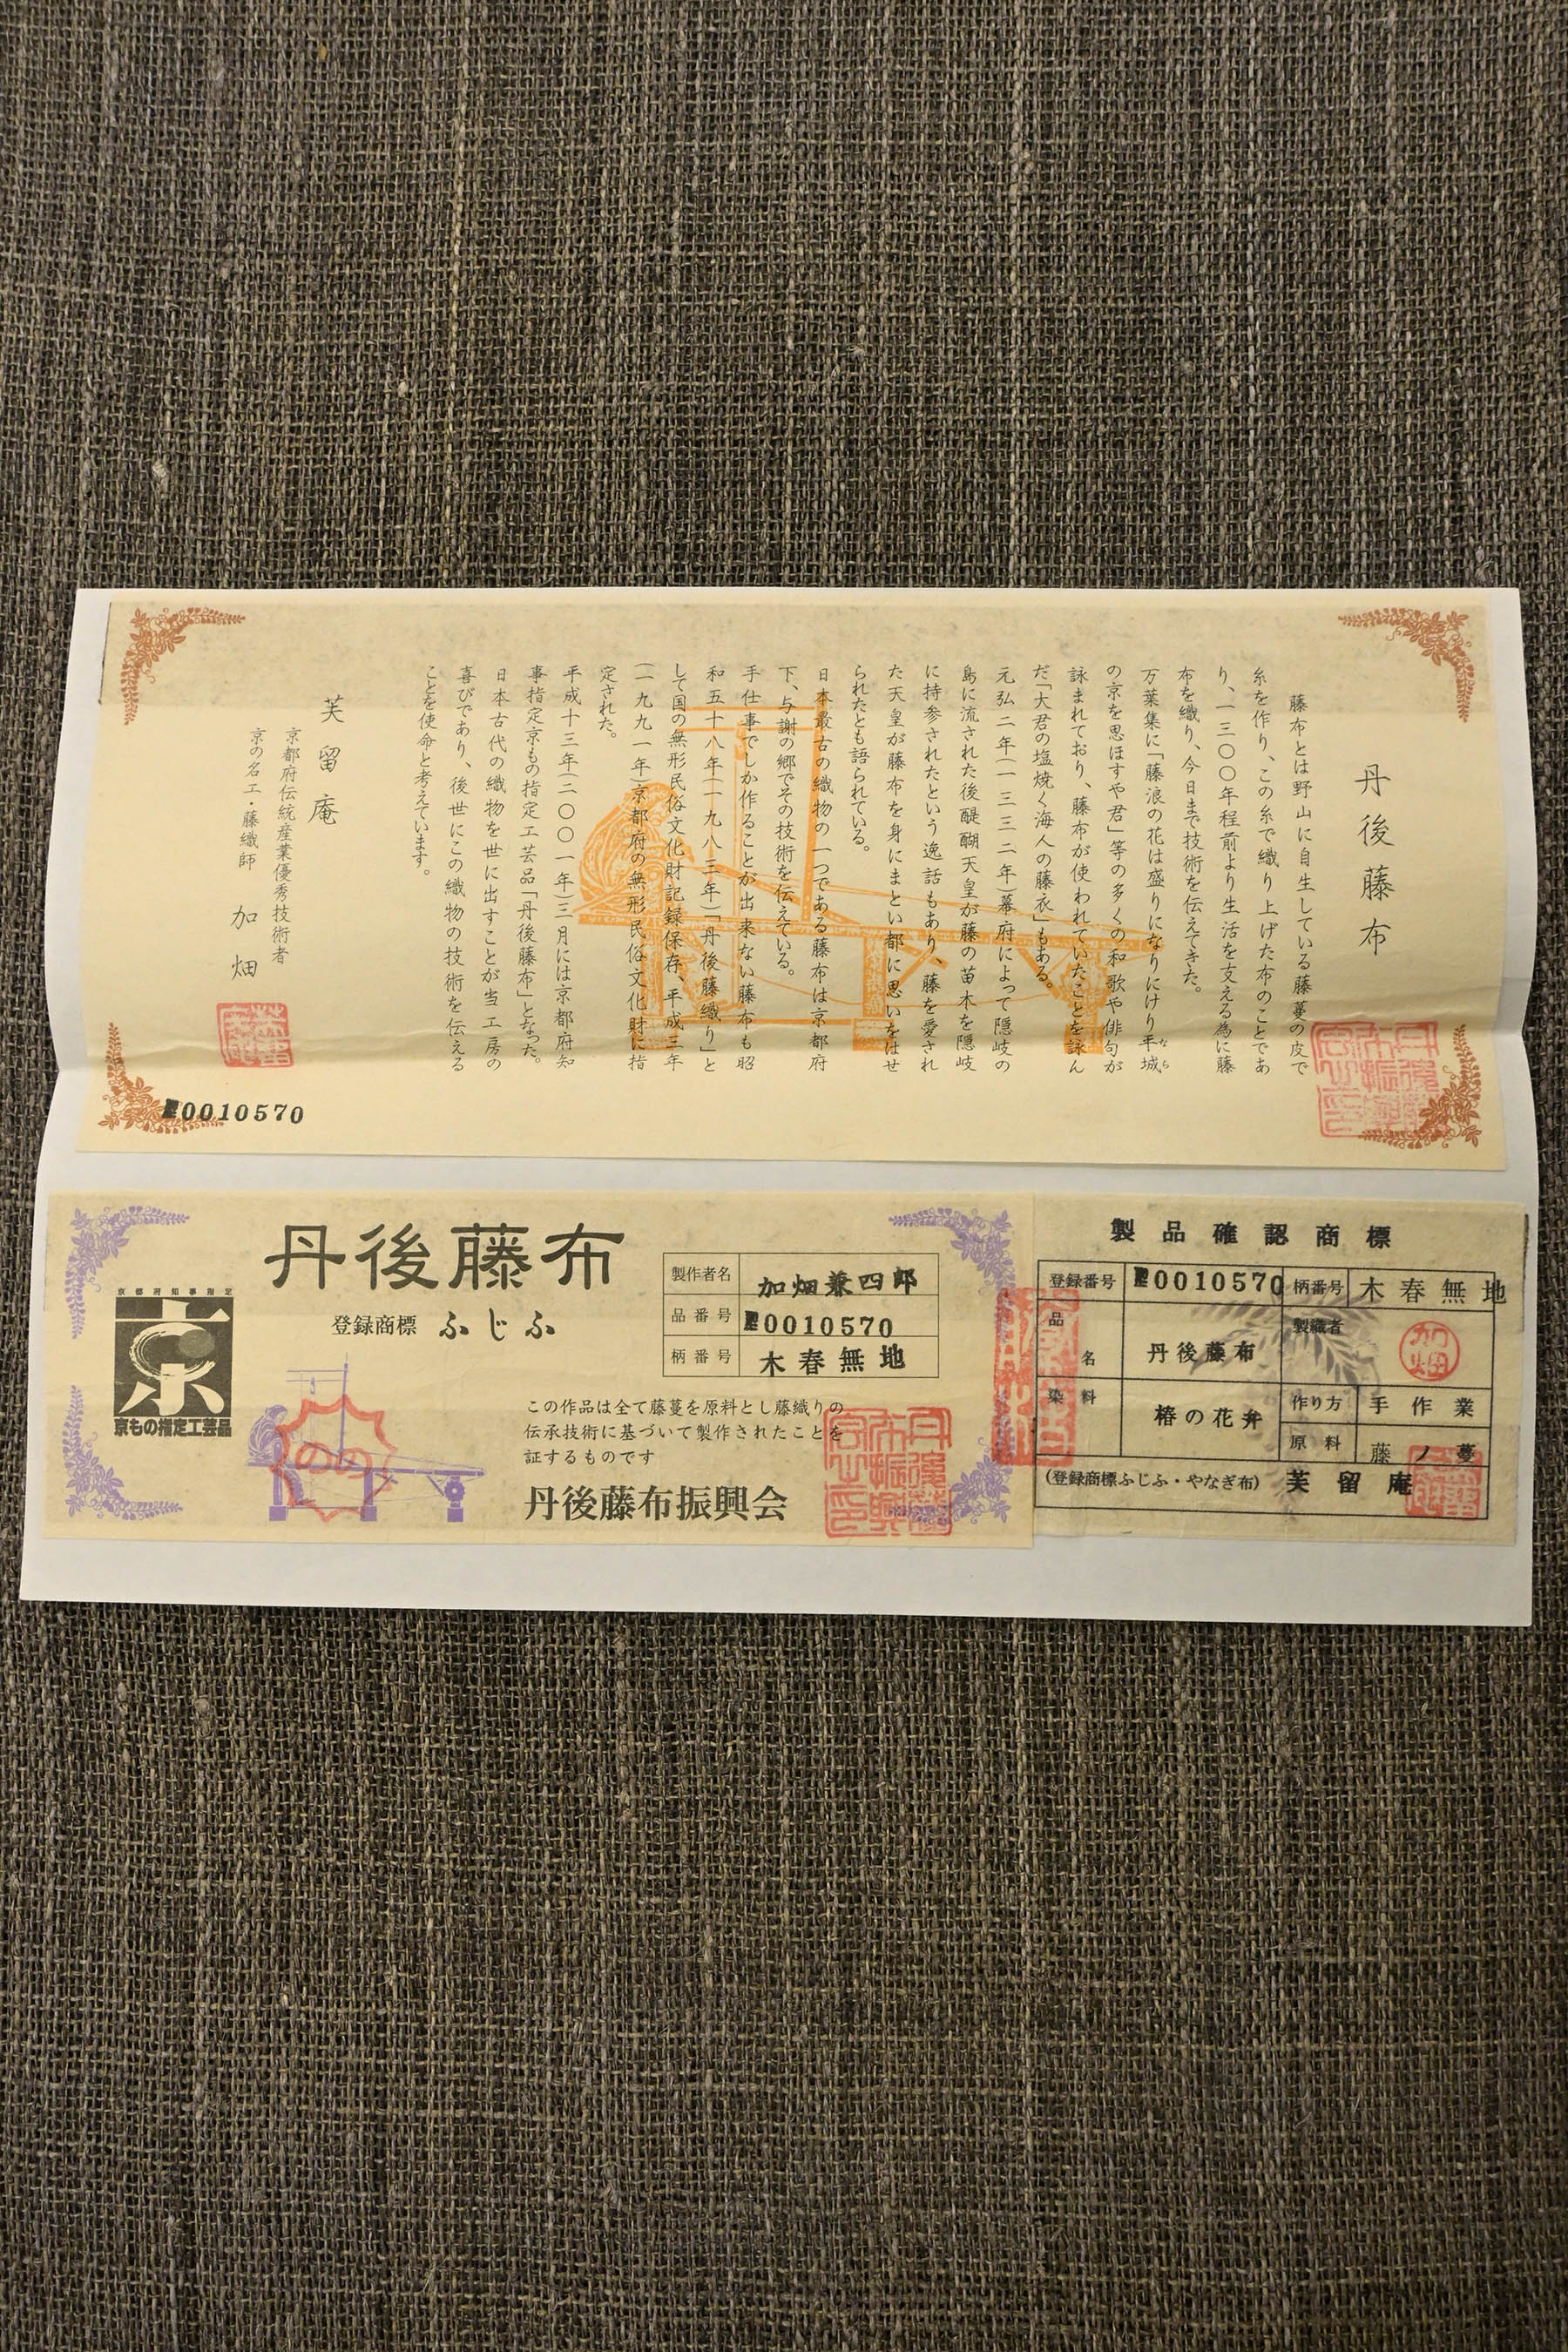 丹後藤布
藤布とは野山に自生している藤蔓の皮で
糸を作り、この糸で織り上げた布のことであ
り、一三〇〇年程前より生活を支える為に藤
布を織り、今日まで技術を伝えてきた。
万葉集に「藤浪の花は盛りになりにけり平城
なら
の京を思ほすや君」等の多くの和歌や俳句が
詠まれており、藤布が使われていたことを詠ん
だ「大君の塩焼く海人の藤衣」もある。
元弘二年(一三三二年)幕府によって隠岐の
島に流された後醍醐天皇が藤の苗木を隠岐
に持参されたという逸話もあり、藤を愛され
た天皇が藤布を身にまとい都に思いをはせ
られたとも語られている。
日本最古の織物の一つである藤布は京都府
下、与謝の郷でその技術を伝えている。
手仕事でしか作ることが出来ない藤布も昭
和五十八年(一九八三年)「丹後藤織り」と
して国の無形民俗文化財記録保存、平成三年
(一九九一年)京都府の無形民俗文化財に指
定された。
平成十三年(二〇〇一年)三月には京都府知
事指定京もの指定工芸品「丹後藤布」となった。
日本古代の織物を世に出すことが当工房の
喜びであり、後世にこの織物の技術を伝える
ことを使命と考えています。
芙留庵
京都府伝統産業優秀技術者
京の名工・藤織師 加畑
0010570
京都府知事指定
京
京もの指定工芸品
丹後藤布
登録商標 ふじふ
製作者名 加畑兼四郎
品番号 0010570
柄番号 木春無地
この作品は全て藤蔓を原料とし藤織りの
伝承技術に基づいて製作されたことを
証するものです
丹後藤布振興会
製品確認商標
登録番号 0010570 柄番号 木春無地
品名 丹後藤布 製織者 加畑
染料 椿の花弁 作り方 手作業
原料 藤ノ蔓
(登録商標ふじふ・やなぎ布) 芙留庵